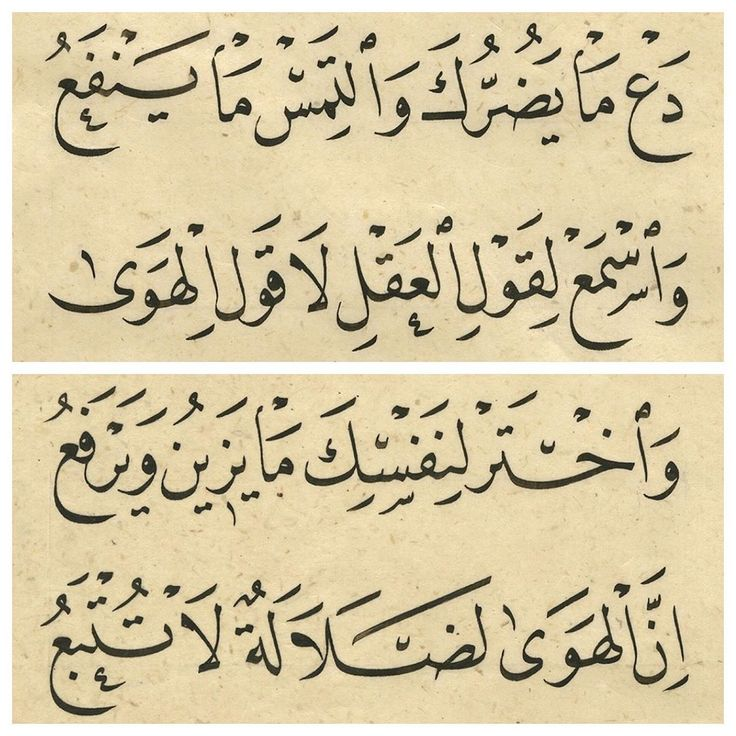 دَعْ مَا يَضُرُّكَ وَٱلْتَمِسْ مَا يَنْفَعُ
وَٱسْمَعْ لِقَوْلِ ٱلْعَقْلِ لَا قَوْلِ الْهَوَىٰ
وَٱخْتَرْ لِنَفْسِكَ مَا يَزِينُ وَيَرْفَعُ
اِنَّ الْهَوَىٰ لَضَلَالَةٌ لَا تُتْبَعُ